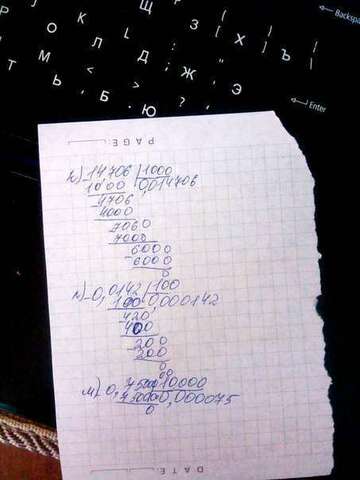 Щ З Х Ъ Backspa
Р О Л Д Ж Э Enter
М Ь Б Ю
PAGE:
к) 14706 | 1000
1000 0,014706
-4706
4000
7060
7000
-6000
6000
0
л) -0,0142 | 100
100 0,000142
-420
400
-200
200
00
м) 0,75000 10000
75000 0,000075
0
DATE: